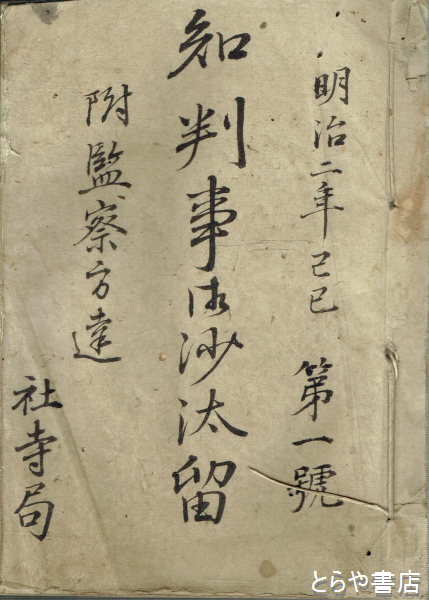 明治二年己巳 第一號
知判事御沙汰留
附監察方達
社寺局
とらや書店